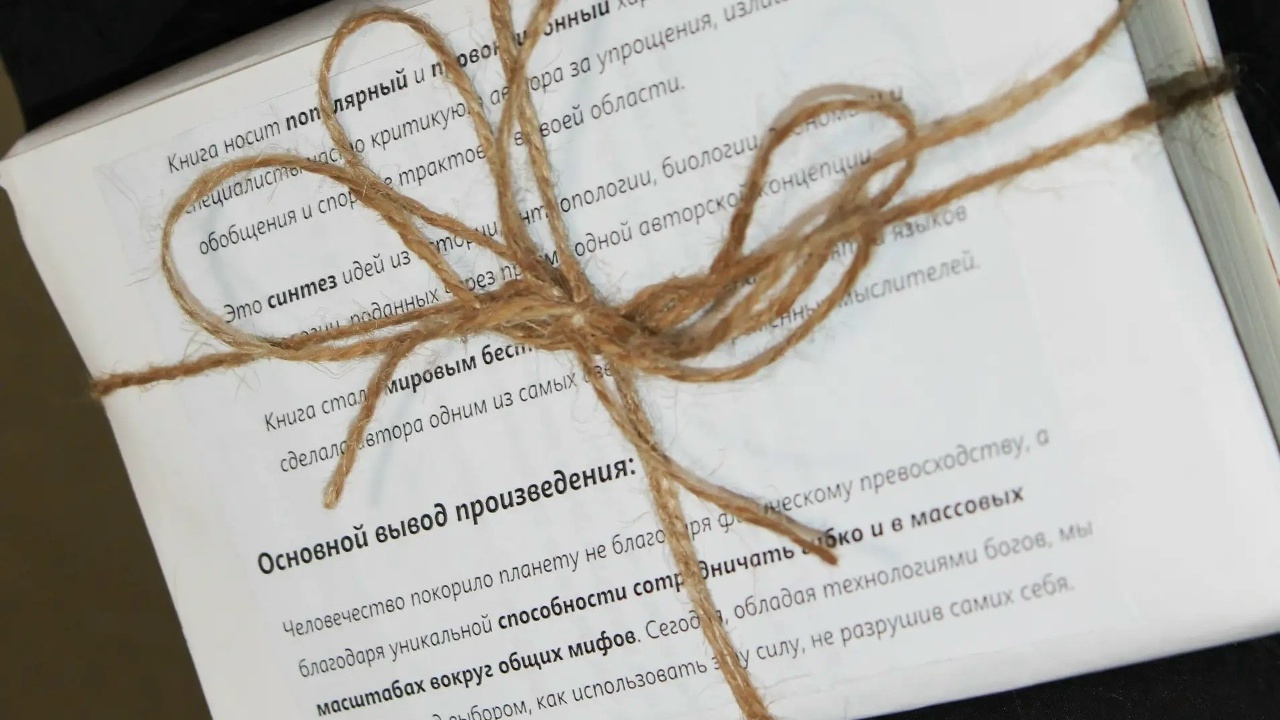 Книга носит популярный и провокационный
специалисты часто критикуют автора за упрощения,
обобщения и спорные трактовки в своей области.
Это синтез идей из истории, антропологии, биологии, экономики и
поданных через призму одной авторской концепции.
языков
Книга стала мировым мыслителей.
сделала автора одним из самых
Основной вывод произведения:
Человечество покорило планету не благодаря физическому превосходству, а
благодаря уникальной способности сотрудничать гибко и в массовых
масштабах вокруг общих мифов. Сегодня, обладая технологиями богов, мы
выбором, как использовать эту силу, не разрушив самих себя.